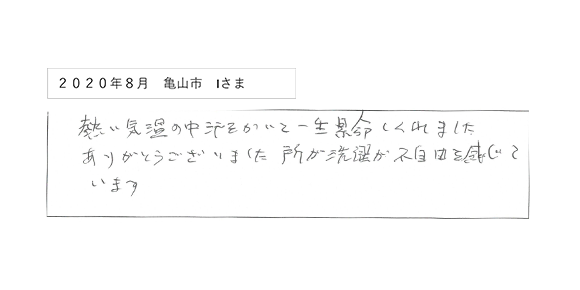 2020年8月 亀山市 Iさま
熱い気温の中汗をかいて一生懸命してくれました
ありがとうございました 所が洗濯が不自由を感じて
います